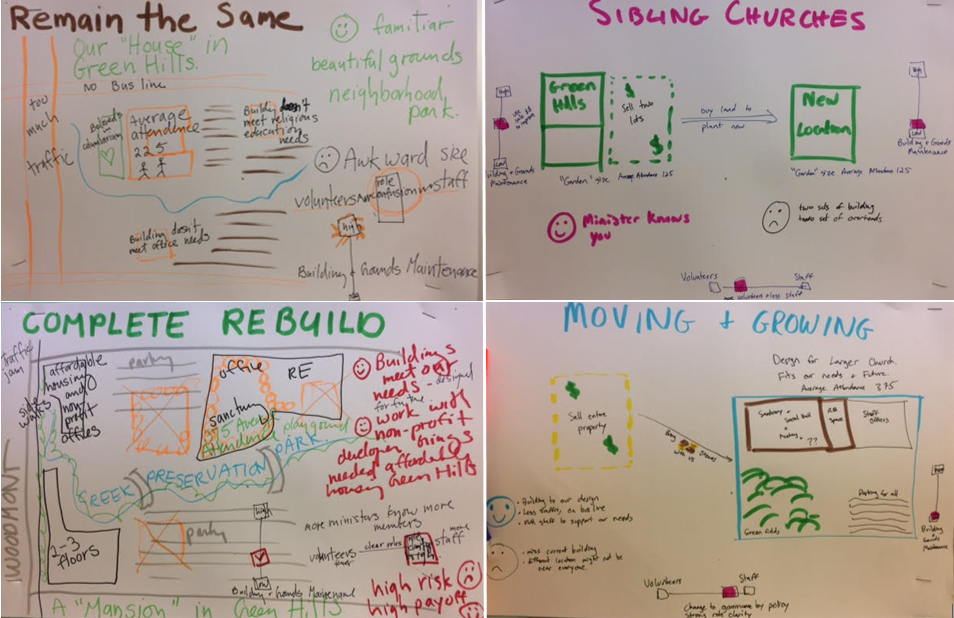 Remain the Same
Our "House" in
Green Hills.
No Bus line
too
much
traffic
Beloved
columbarium
Average
attendence
225
Building doesn't
meet religious
education
needs
Building doesn't
meet office needs
familiar
beautiful grounds
neighborhood
park.
Awkward size
volunteers
role
confusion
staff
high
Building + Grounds Maintenance
SIBLING CHURCHES
High
Low
Building + Grounds
Maintenance
Green
Hills
Sell two
lots
"Garden" size Average Attendance 125
buy land to
plant new
New
Location
"Garden" size Average Attendance 125
High
Low
Building + Grounds
Maintenance
Minister knows
you
two sets of building
two set of overheads
Volunteers
Staff
volunteers + less staff
COMPLETE REBUILD
Traffic
jam
side
walks
WOODMONT
affordable
housing
and
non-
profit
offices
parking
office
RE
sanctuary
Average
Attendance
playground
CREEK PRESERVATION PARK
2-3
floors
parking
high
low
Building + Grounds Maintenance
Buildings
meet our
needs - designed
for future
work with
non-profit
developer brings
needed affordable
housing Green Hills
more ministers know more
members
volunteers
clear roles
more
staff
high risk
high payoff
A "Mansion" in Green Hills
MOVING + GROWING
Design for Larger Church
Fits our needs + Future.
Average Attendance 375
Sell entire
property
Bring
Stones
with us
Sanctuary
+
Social Hall
+
Meeting
??
RE
Space
Staff
Offices
Green fields
Parking for all
Building to our design
Less traffic, on bus line
more staff to support our needs
miss current building
different location might not be
near everyone
High
Building
Grounds
Maintenance
Volunteers
Staff
Change to governance by policy
strong role clarity